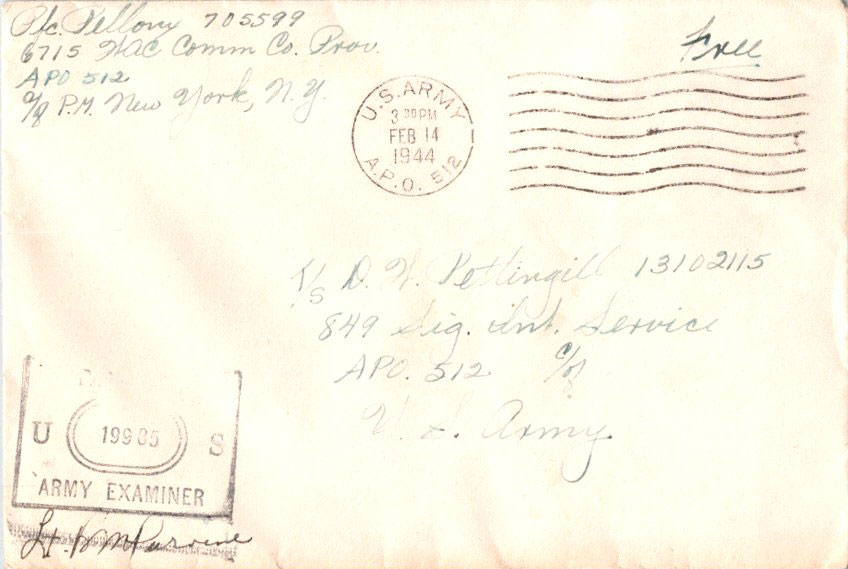 Pfc. Pellony 705599
6715 WAC Comm Co. Prov.
APO 512
c/o P.M. New York, N.Y.
Free
U.S. ARMY
3 30 PM
FEB 14
1944
A.P.O. 512
T/5 D. W. Pettingill 13102115
849 Sig. Int. Service
APO. 512 c/o
U. S. Army
U 19985 S
ARMY EXAMINER
Lt.